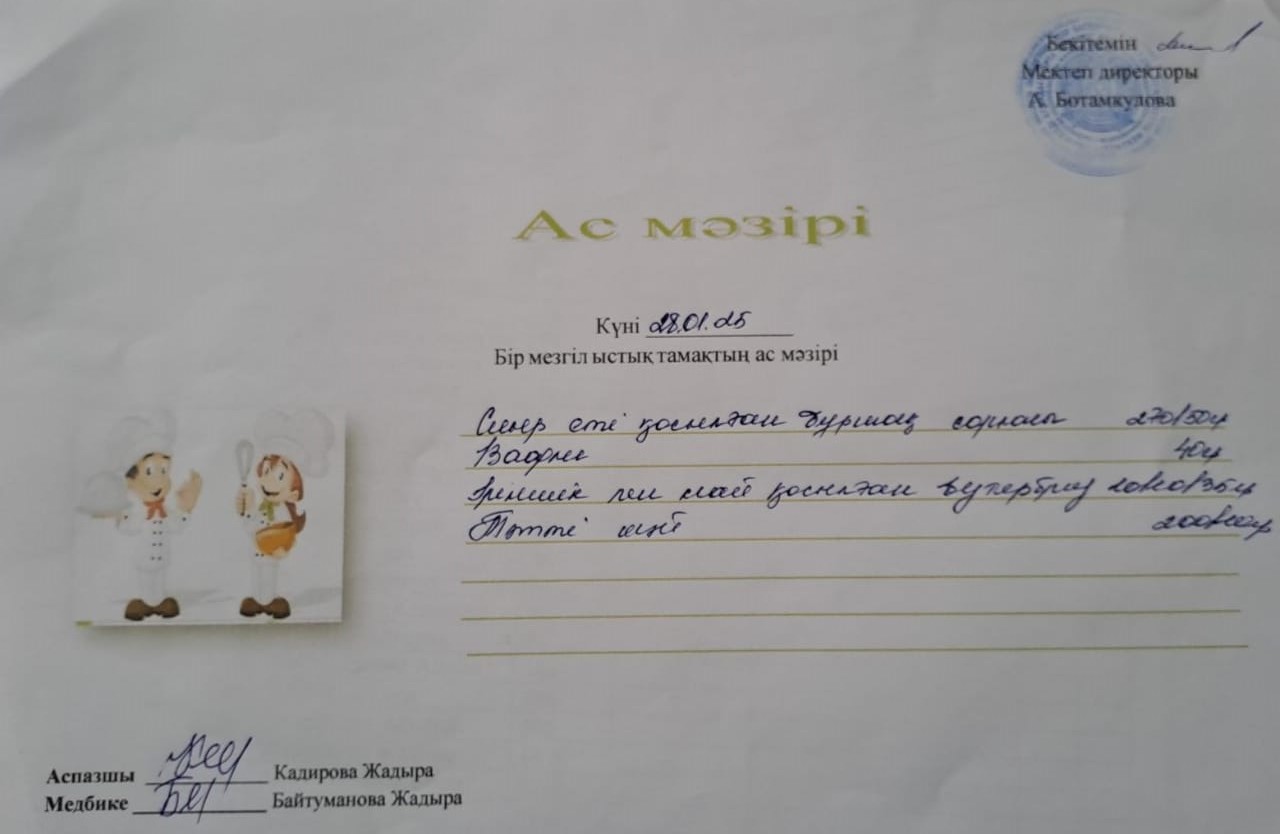 Бекітемін
Мектеп директоры
А. Ботамкулова
Ас мәзірі
Күні 28.01.25
Бір мезгіл ыстық тамақтың ас мәзірі
Сиыр еті қосылған бұршақ сорпасы 270/50гр
Вафли 40гр
Ірімшік пен май қосылған бутерброд
Тәтті шәй
Аспазшы Кадирова Жадыра
Медбике Байтуманова Жадыра